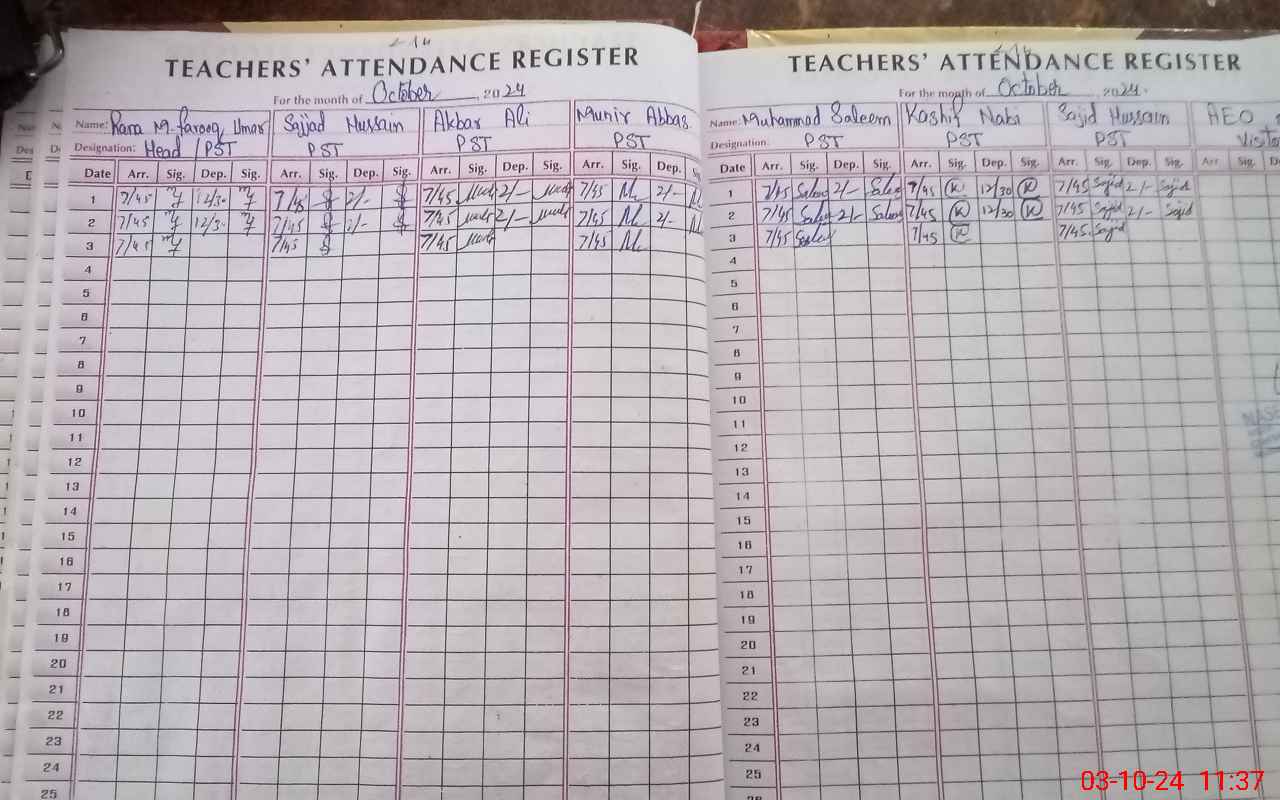 TEACHERS' ATTENDANCE REGISTER
For the month of October, 2024
Name: Rana M. Farooq Umar Sajjad Hussain Akbar Ali Munir Abbas
Designation: Head / PST PST PST PST
Date Arr. Sig. Dep. Sig. Arr. Sig. Dep. Sig. Arr. Sig. Dep. Sig. Arr. Sig. Dep.
1 7/45 12/30 7/45 2/- 7/45 2/- 7/45 2/-
2 7/45 12/30 7/45 2/- 7/45 2/- 7/45 2/-
3 7/45 7/45 7/45 7/45
4
5
6
7
8
9
10
11
12
13
14
15
16
17
18
19
20
21
22
23
24
25
TEACHERS' ATTENDANCE REGISTER
For the month of October, 2024
Name: Muhammad Saleem Kashif Nabi Sajid Hussain AEO
Designation. PST PST PST
Date Arr. Sig. Dep. Sig. Arr. Sig. Dep. Sig. Arr. Sig. Dep. Sig. Arr Sig.
1 7/45 Saleem 2/- Saleem 7/45 K 12/30 K 7/45 Sajid 2/- Sajid
2 7/45 Saleem 2/- Saleem 7/45 K 12/30 K 7/45 Sajid 2/- Sajid
3 7/45 Saleem 7/45 K 7/45 Sajid
4
5
6
7
8
9
10
11
12
13
14
15
16
17
18
19
20
21
22
23
24
25
03-10-24 11:37